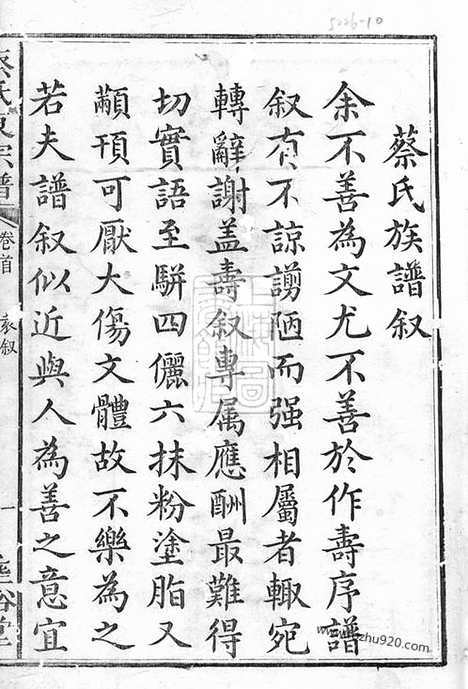 5226-10
蔡氏族譜叙
余不善為文尤不善於作壽序譜
叙有不諒謭陋而强相屬者輙宛
轉辭謝盖壽叙專属應酬最難得
切實語至駢四儷六抹粉塗脂又
顢頇可厭大傷文體故不樂為之
若夫譜叙似近與人為善之意宜
蔡氏支宗譜
卷首
叙
一
裕堂